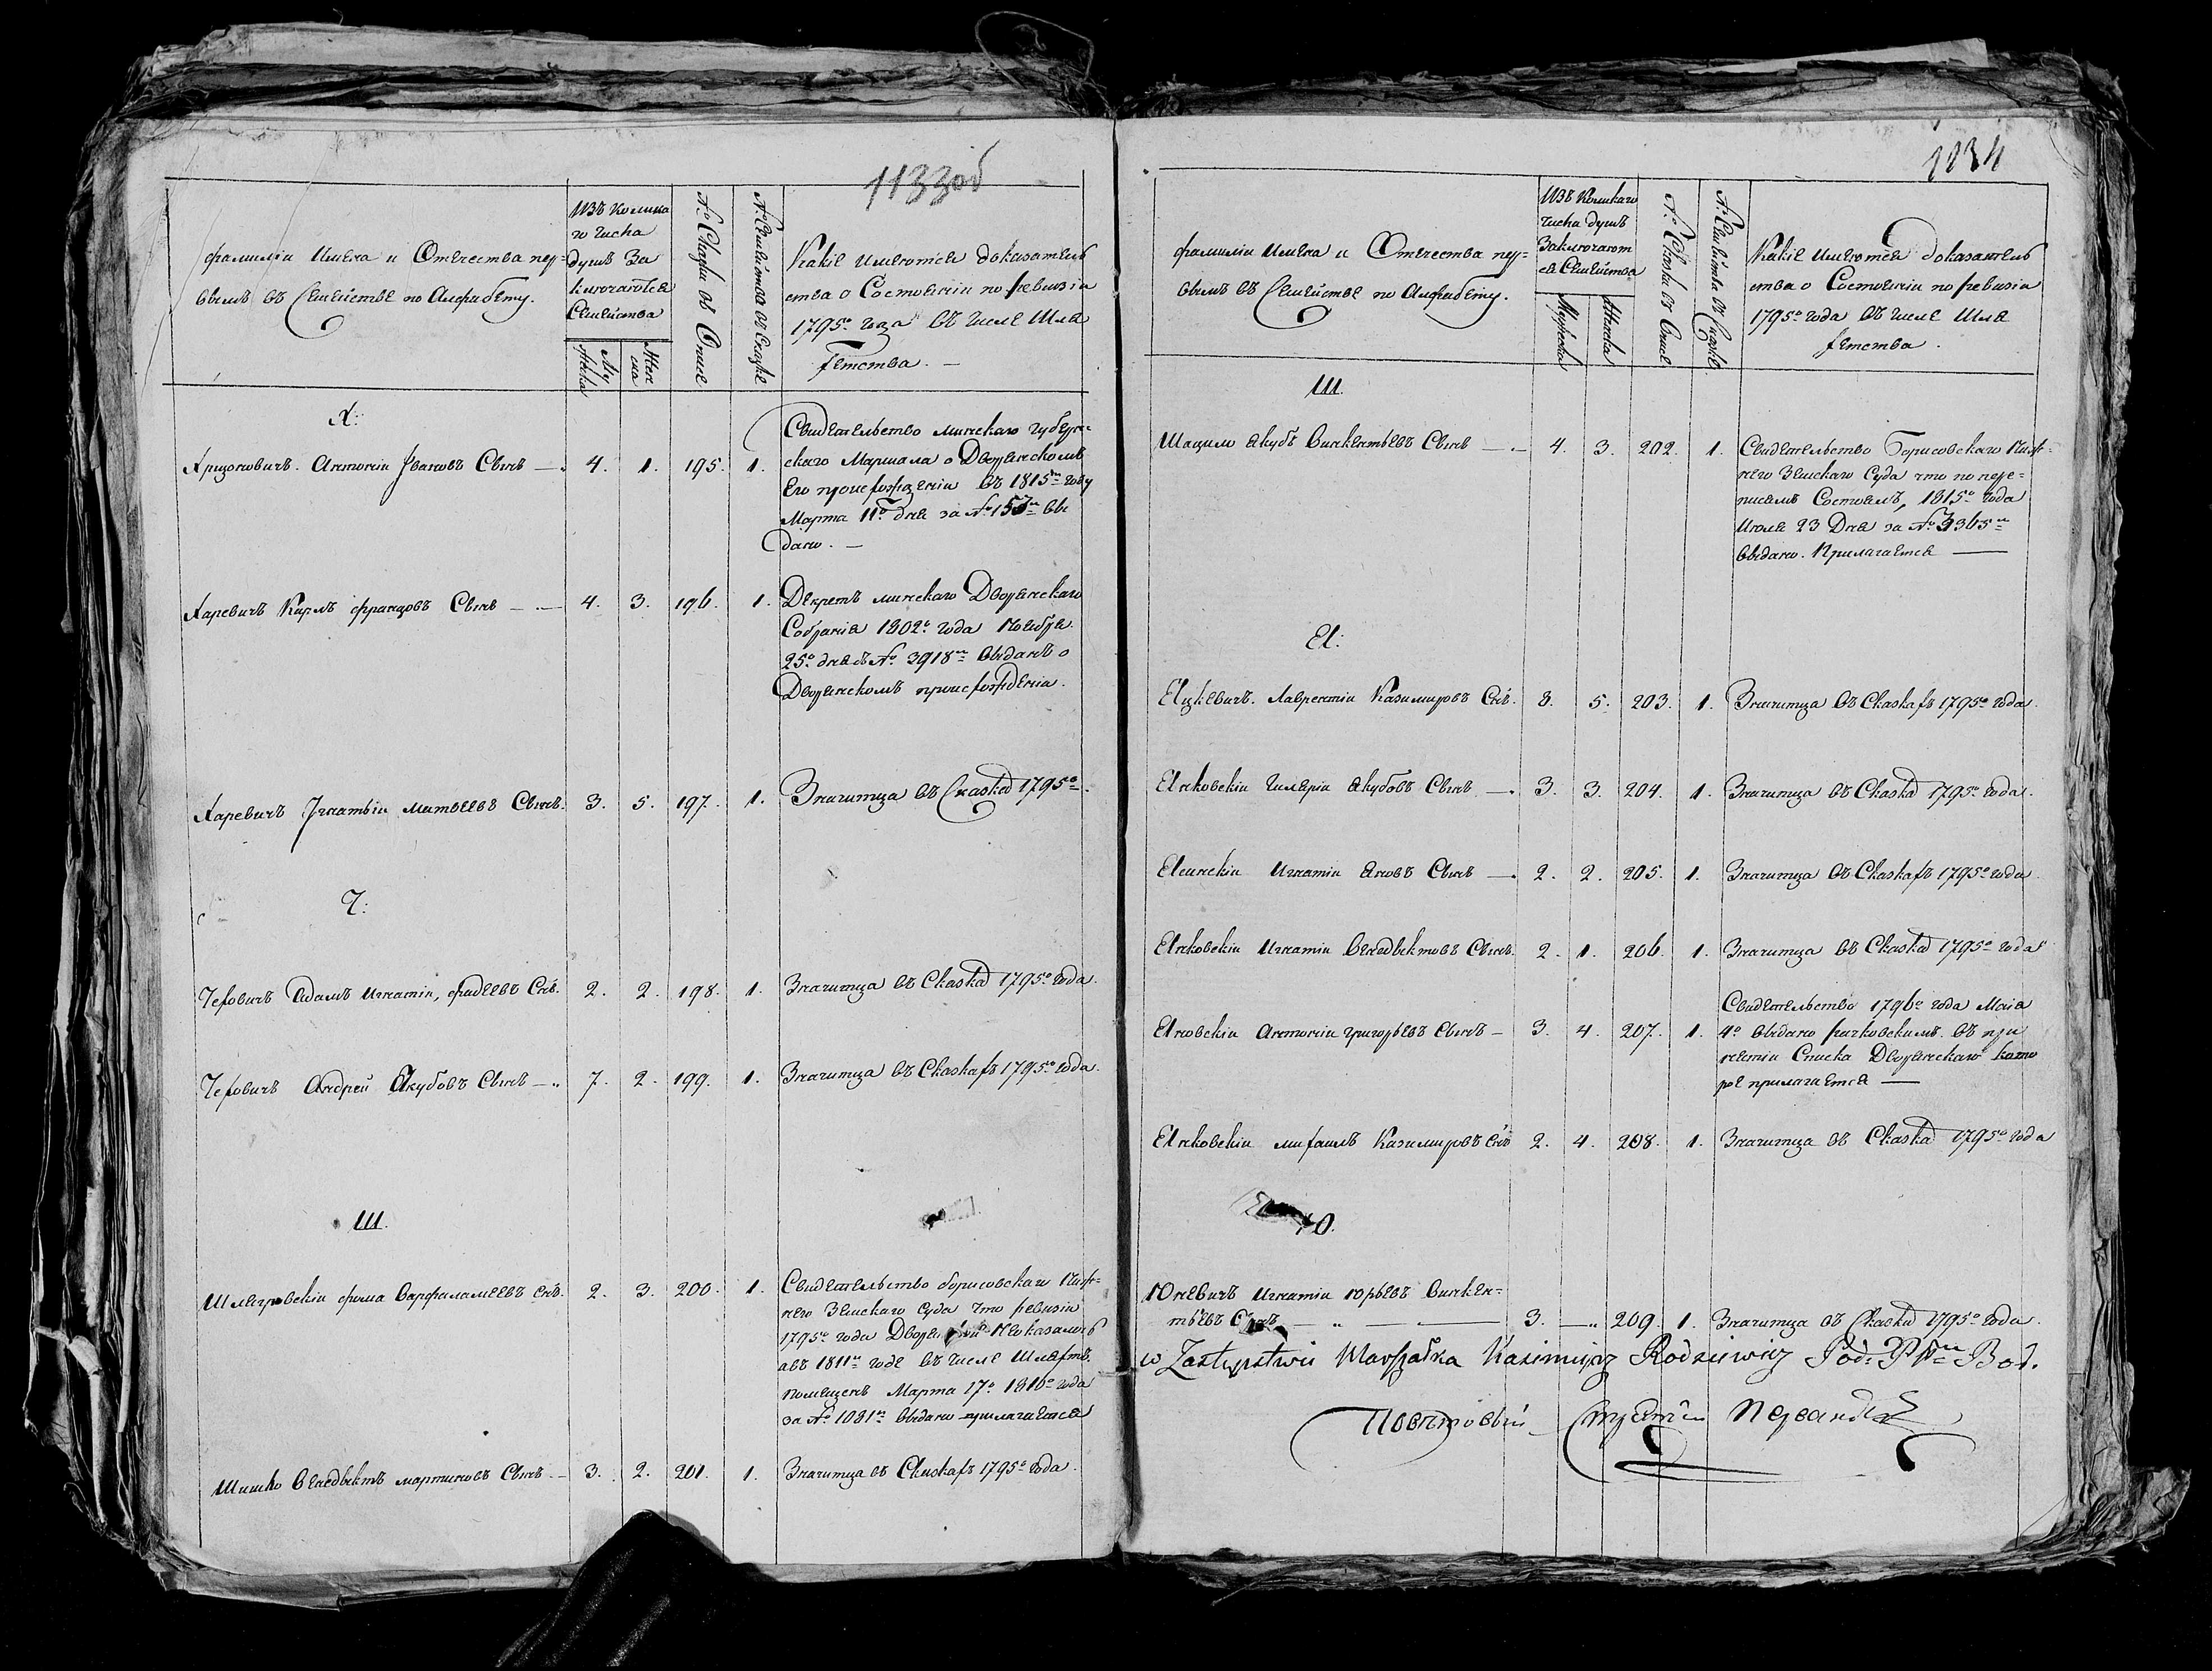 1133об
фамиліи Имена и Отечества пер=
вымъ въ Семействе по Алфабету.
изъ колика
го числа
душъ За
ключаются
Семейства
Му
жска
Жен
ска
№ Сказки въ Описе
№ Семейства въ Сказке
Какіе имеются доказатель
ства о Состояніи по ревизіи
1795го года въ числе Шля
хетства. —
Х:
Антоніи Ивановъ Сынъ — 4. 1. 195. 1.
Свидетельство минскаго губерн=
скаго Маршала о Дворянскомъ
Его происхожденіи въ 1815м году
Марта 11го дня за № вы
дано. —
Харевичъ Карлъ францовъ Сынъ — 4. 3. 196. 1.
Декретъ минскаго Дворянскаго
Собранія 1802го года Ноября
25го дня №. 3918м выданъ о
Дворянскомъ происхожденіи.
Харевичъ Игнатьіи матвеевъ Сынъ. 3. 5. 197. 1. Значитца въ Сказка 1795го.
Ч:
Чеховичъ Адамъ Игнатіи, фадеевъ Снъ. 2. 2. 198. 1. Значитца въ Сказка 1795го года.
Чеховичъ Андрей Якубовъ Сынъ — 7. 2. 199. 1. Значитца въ Сказкахъ 1795го года.
Ш.
фома Варфаламеевъ Снъ. 2. 3. 200. 1.
Свидетельство борисовскаго Ниж=
него Земскаго Суда что ревизіи
1795го года Неоказалось
авъ 1811м годе въ числе Шляхтъ.
помещенъ Марта 17го 1816го года
за № 1081м выдано прилагается
Шишко Венедыктъ мартиновъ Сынъ — 3. 2. 201. 1. Значитца въ Сказкахъ 1795го года.
1134
фамиліи Имена и Отечества пер=
вымъ въ Семействе по Алфабету.
Изъ Коликаго
числа душъ
Заключают
ся Семейства
Мужеска
Женска
№ Сказки въ Описе
№ Семейства въ Сказке.
Какіе имеются доказатель
ства о Состояніи по ревизіи
1795го года въ числе Шля
хетства.
Ш.
Шацило Якубъ Винкентьевъ Сынъ — 4. 3. 202. 1.
Свидетельство Борисовскаго Ниж=
него Земскаго Суда что по пере=
писямъ Состоялъ, 1815го года
Июля 23 Дня за №. 3365м
выдано. Прилагается —
Я:
Яцкевичъ. Лаврентіи Казимировъ Снъ. 8. 5. 203. 1. Значитца въ Сказкахъ 1795го года.
Янковскіи Гиляріи Якубовъ Сынъ — 3. 3. 204. 1. Значитца въ Сказка 1795го года.
Ясинскіи Игнатіи Яновъ Сынъ — 2. 2. 205. 1. Значитца въ Сказкахъ 1795го года.
Янковскіи Игнатіи Венедыктовъ Сынъ. 2. 1. 206. 1. Значитца въ Сказка 1795го года
Антоніи григорьевъ Сынъ — 3. 4. 207. 1.
Свидетельство 1796го года Маія
4го выдано въ при
нятіи Списка Дворянскаго кото
рое прилагается —
Янковскіи михаилъ Казимировъ Снъ 2. 4. 208. 1. Значитца въ Сказка 1795го года
Ю.
Юневичъ Игнатіи юрьевъ Винкен=
тьевъ Снъ — 3. — 209. 1. Значитца въ Сказка 1795го года.
w Zastępstwie Marszałka Kazimierz Rodziewicz Pod: Bor.
Поветовый